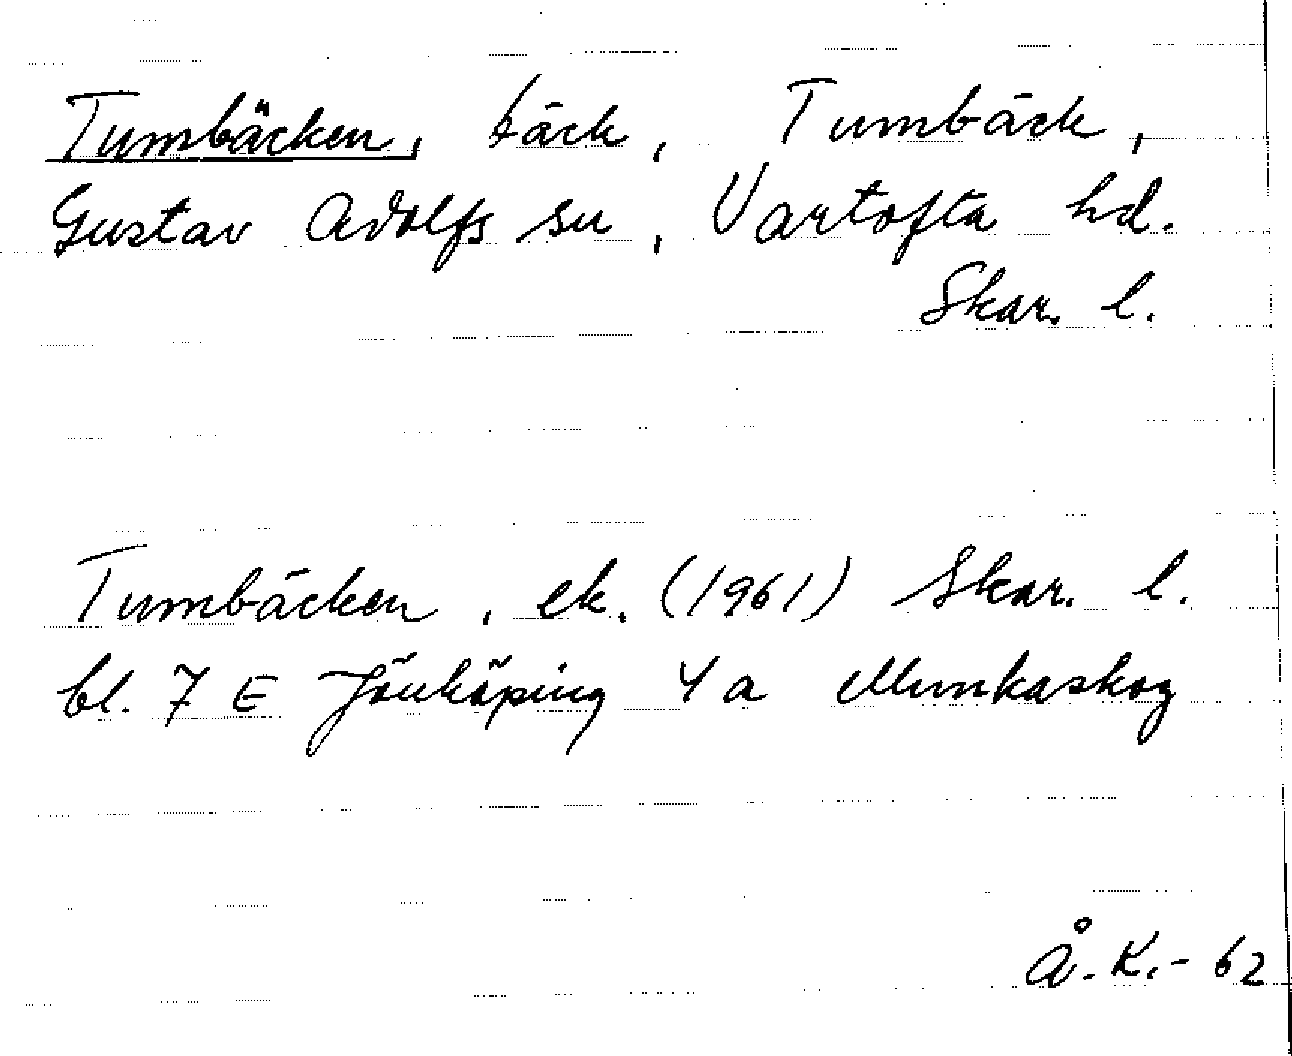 Tumbäcken, bäck, Tumbäck,
Gustav Adolfs sn, Vartofta hd.
Skar. l.
Tumbäcken, ek. (1961) Skar. l.
bl. 7 E Jönköping 4 a Munkaskog
Å.K.-62